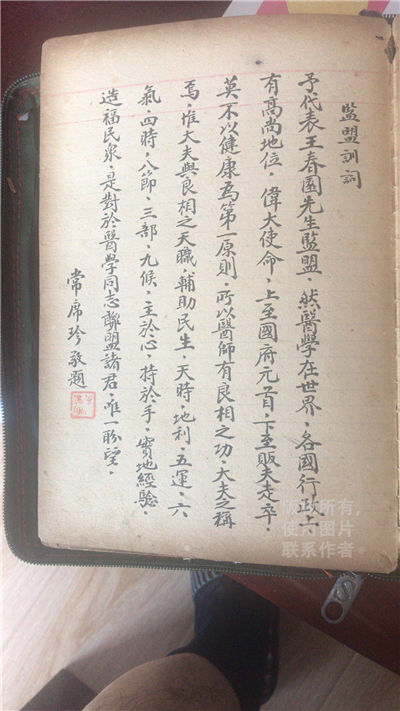 監盟訓詞
予代表王春園先生監盟．然醫學在世界．各國行政上
有高尚地位．偉大使命．上至國府元首．下至販夫走卒．
莫不以健康為第一原則．所以醫師有良相之功．大夫之稱
焉．惟大夫與良相之天職．輔助民生．天時．地利．五運．六
氣．四時．八節．三部．九候．主於心．持於手．實地經驗．
造福民衆．是對於醫學同志聯盟諸君．唯一盼望．
常席珍敬題
版权所有，
使用图片
联系作者